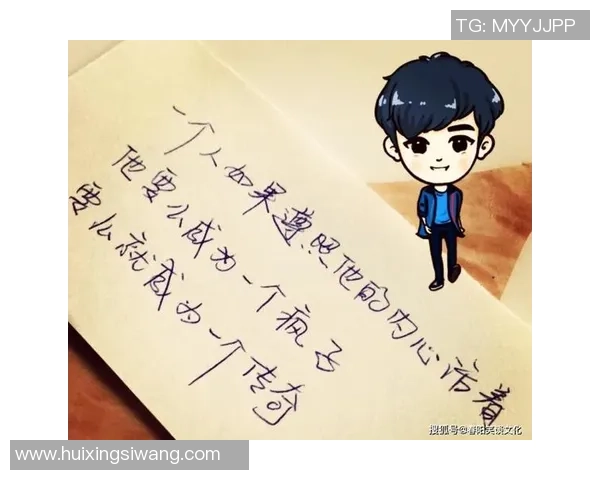 TG: MYYJJPP
一个人如果遵照他的内心活着
他要么成为一个疯子
要么就成为一个传奇
搜狐号@春阳笑谈文化
www.huixingsiwang.com